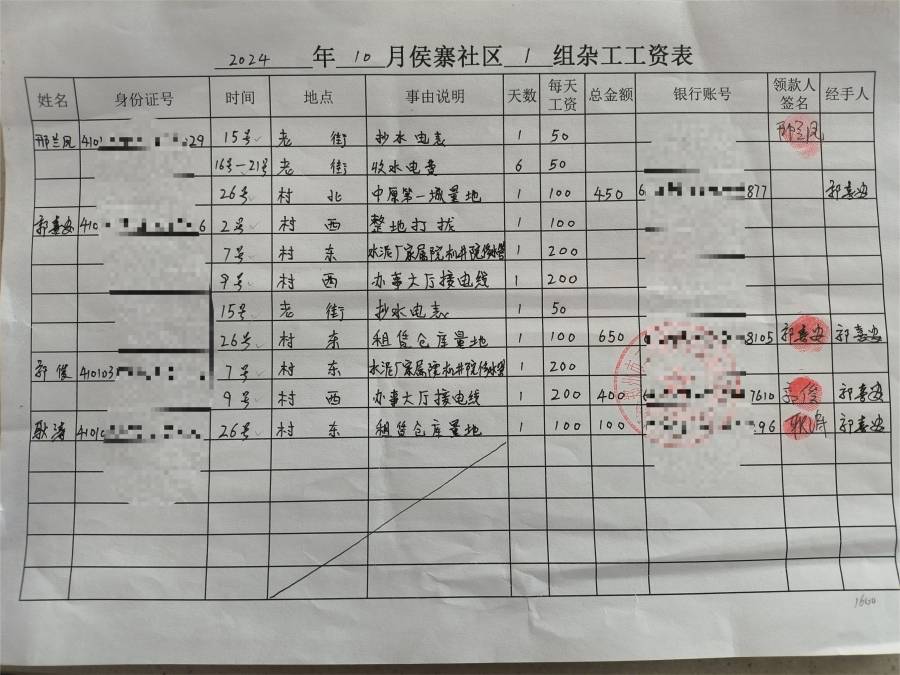 2024 年 10 月侯寨社区 1 组杂工工资表
姓名 身份证号 时间 地点 事由说明 天数 每天工资 总金额 银行账号 领款人签名 经手人
邢兰凤 4101 29 15号 老 街 抄水电表 1 50 邢兰凤
16号—21号 老 街 收水电费 6 50
26号 村 北 中原第一城量地 1 100 450 6 877 郭喜安
郭喜安 410 6 2号 村 西 整地打拢 1 100
7号 村 东 水泥厂家属院机井院修水管 1 200
9号 村 西 办事大厅接电线 1 200
15号 老 街 抄水电表 1 50
26号 村 东 租赁仓库量地 1 100 650 8105 郭喜安 郭喜安
郭俊 410103 7号 村 东 水泥厂家属院机井院修水管 1 200
9号 村 西 办事大厅接电线 1 200 400 7610 郭俊 郭喜安
耿涛 4101 26号 村 东 租赁仓库量地 1 100 100 96 耿涛 郭喜安
1600